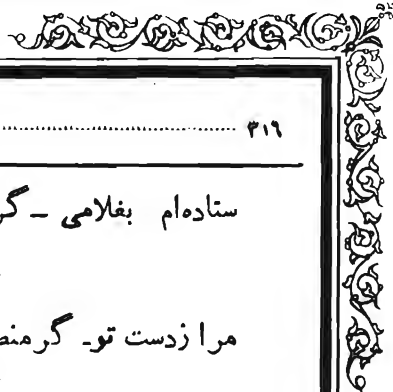 ۳۱۶ ........................
ستاده‌ام بغلامی ـ
مرا زدست تو۔ گر